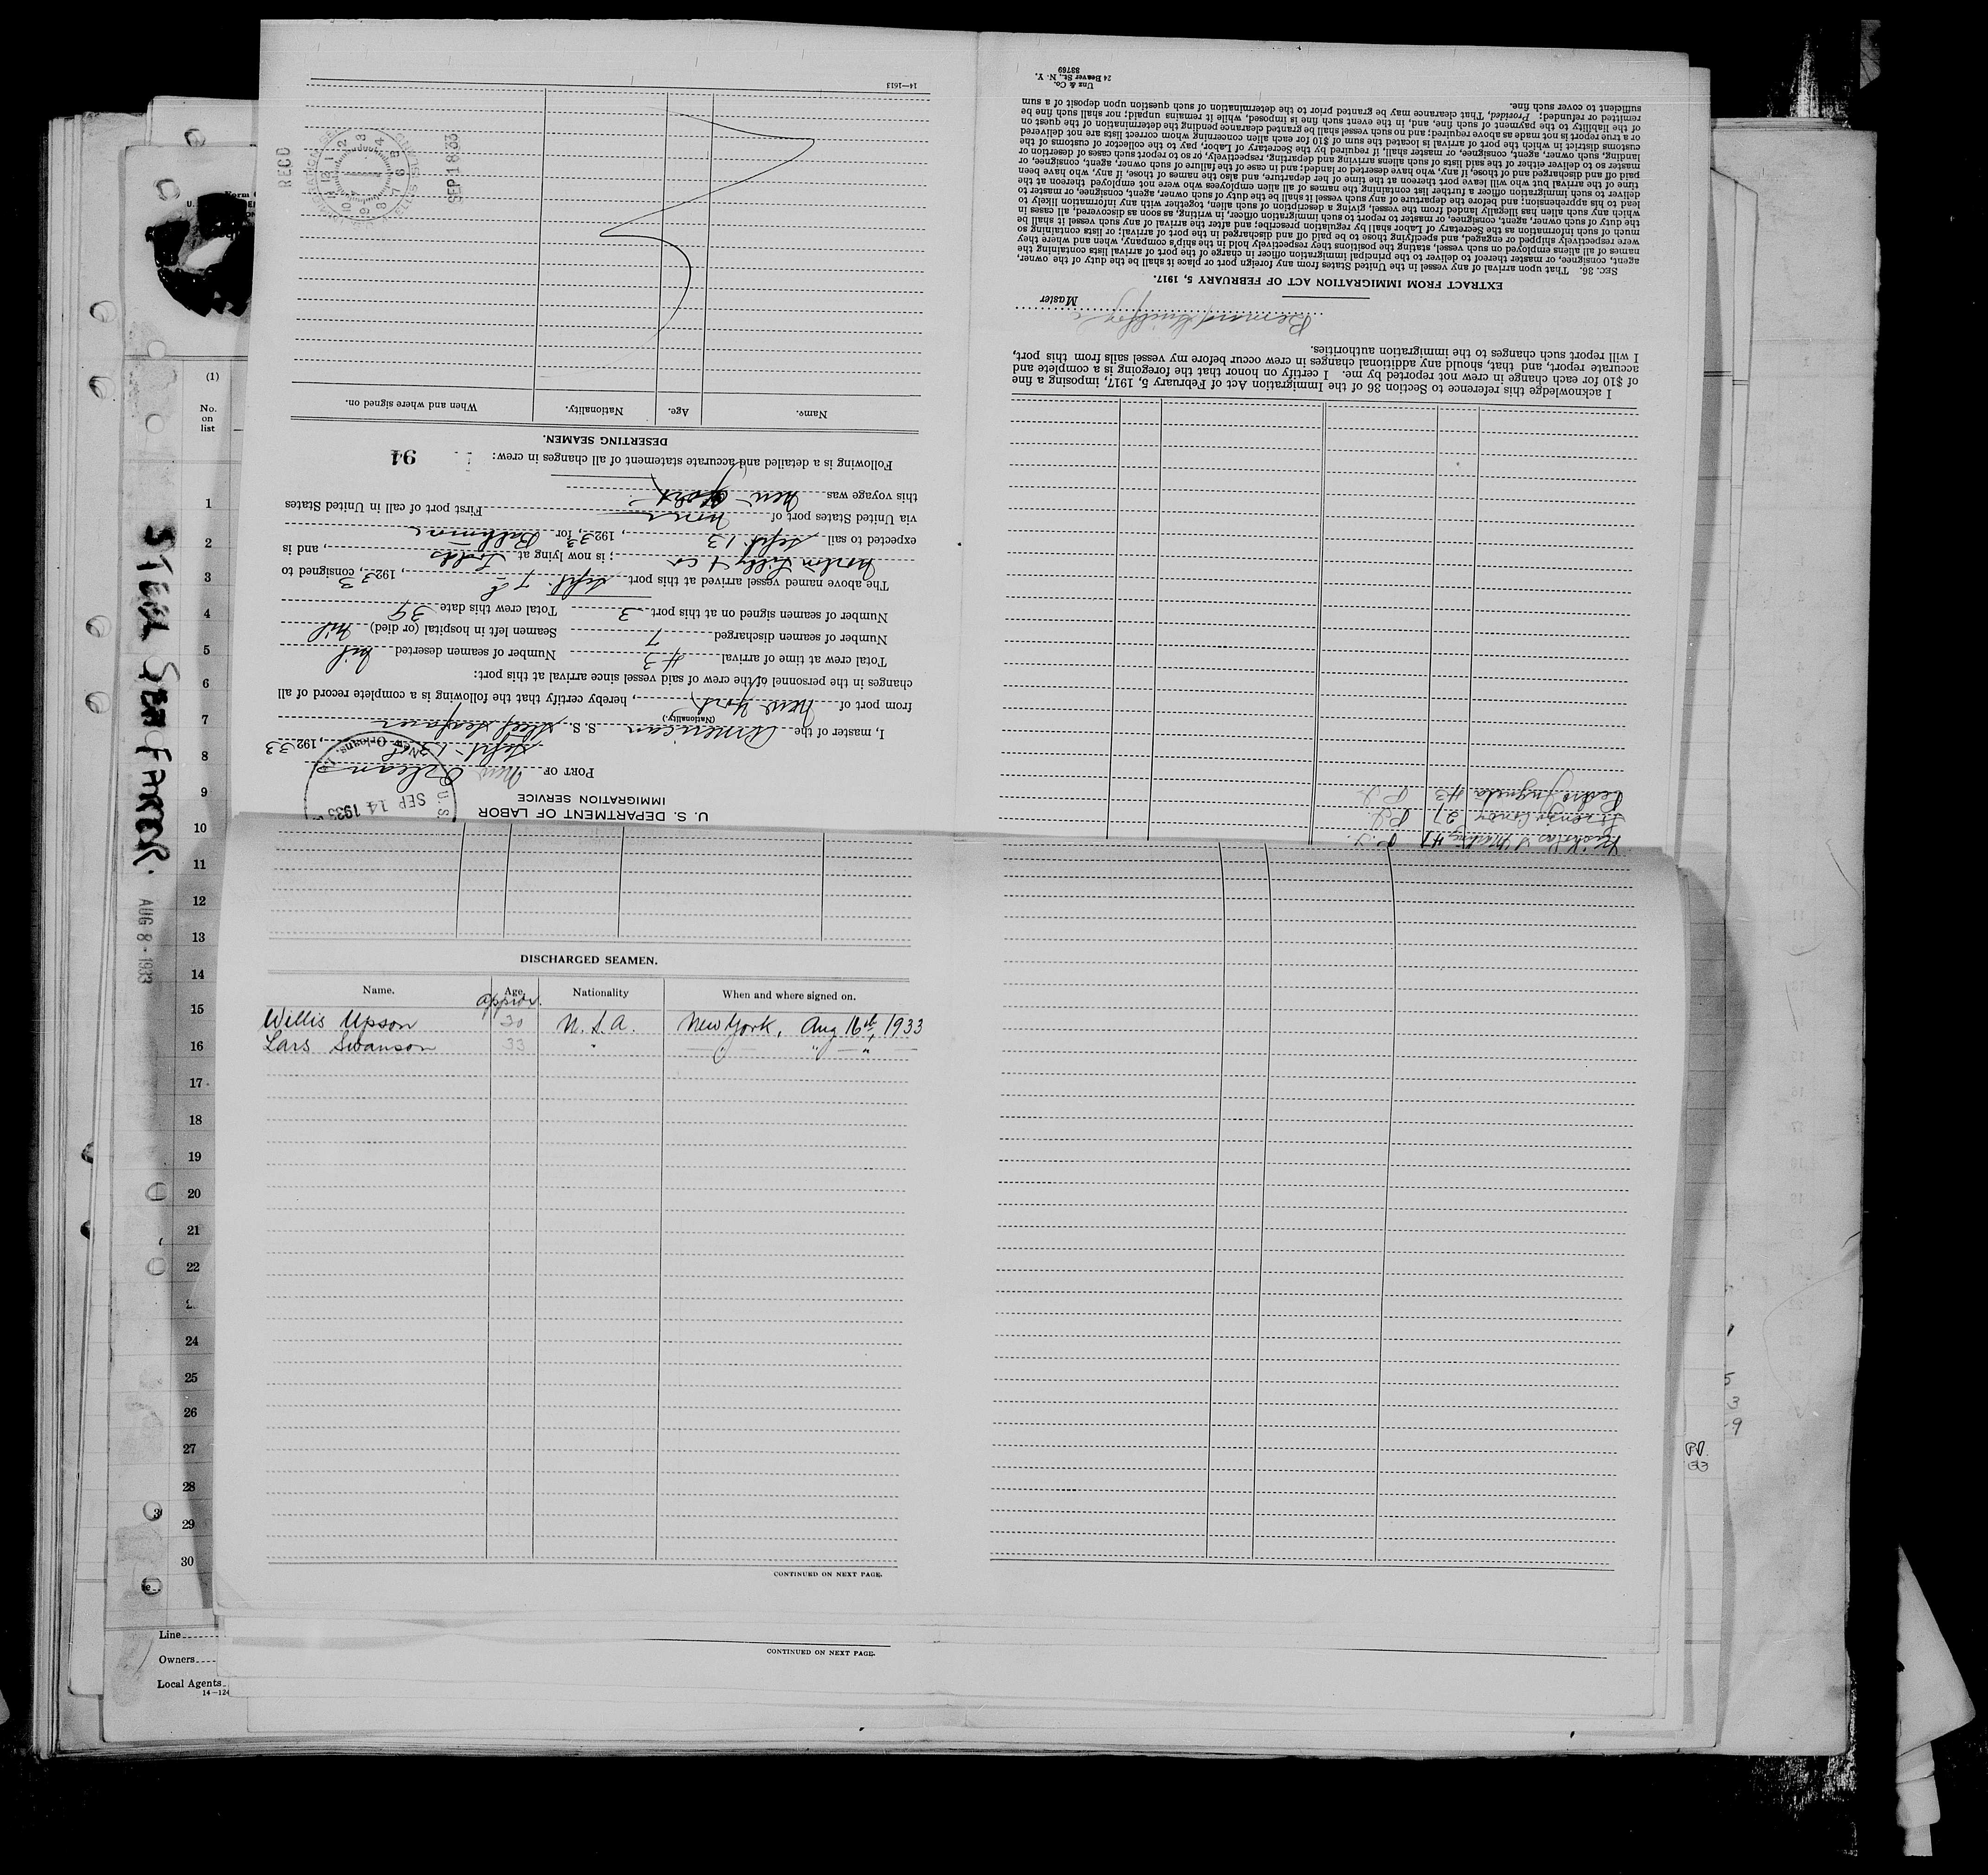 U. S. DEPARTMENT OF LABOR
IMMIGRATION SERVICE
U.S.
SEP 14 1933
New Orleans,
PORT OF New Orleans
Sept 13, 19233
I, master of the American S. S. Steel Seafarer
(Nationality.)
from port of New York, hereby certify that the following is a complete record of all
changes in the personnel of the crew of said vessel since arrival at this port:
Total crew at time of arrival 43 Number of seamen deserted nil
Number of seamen discharged 7 Seamen left in hospital (or died) nil
Number of seamen signed on at this port 3 Total crew this date 39
The above named vessel arrived at this port Sept. 7th, 19233, consigned to
Norton Lilly & Co; is now lying at Todds, and is
expected to sail Sept 13, 19233, for Baltimore
via United States port of none First port of call in United States
this voyage was New York
Following is a detailed and accurate statement of all changes in crew:
94
DESERTING SEAMEN.
Name. Age. Nationality. When and where signed on.
RECD
SEP 18 33
14—1613
Pedro Jugueta 43 P.I.
27 P.I.
Nicholas 41 P.I.
I acknowledge this reference to Section 36 of the Immigration Act of February 5, 1917, imposing a fine
of $10 for each change in crew not reported by me. I certify on honor that the foregoing is a complete and
accurate report, and that, should any additional changes in crew occur before my vessel sails from this port,
I will report such changes to the immigration authorities.
Master
EXTRACT FROM IMMIGRATION ACT OF FEBRUARY 5, 1917.
SEC. 36. That upon arrival of any vessel in the United States from any foreign port or place it shall be the duty of the owner,
agent, consignee, or master thereof to deliver to the principal immigration officer in charge of the port of arrival lists containing the
names of all aliens employed on such vessel, stating the positions they respectively hold in the ship's company, when and where they
were respectively shipped or engaged, and specifying those to be paid off and discharged in the port of arrival; or lists containing so
much of such information as the Secretary of Labor shall by regulation prescribe; and after the arrival of any such vessel it shall be
the duty of such owner, agent, consignee, or master to report to such immigration officer, in writing, as soon as discovered, all cases in
which any such alien has illegally landed from the vessel, giving a description of such alien, together with any information likely to
lead to his apprehension; and before the departure of any such vessel it shall be the duty of such owner, agent, consignee, or master to
deliver to such immigration officer a further list containing the names of all alien employees who were not employed thereon at the
time of the arrival but who will leave port thereon at the time of her departure, and also the names of those, if any, who have been
paid off and discharged and of those, if any, who have deserted or landed; and in case of the failure of such owner, agent, consignee, or
master so to deliver either of the said lists of such aliens arriving and departing, respectively, or so to report such cases of desertion or
landing, such owner, agent, consignee, or master shall, if required by the Secretary of Labor, pay to the collector of customs of the
customs district in which the port of arrival is located the sum of $10 for each alien concerning whom correct lists are not delivered
or a true report is not made as above required; and no such vessel shall be granted clearance pending the determination of the quest on
of the liability to the payment of such fine, and, in the event such fine is imposed, while it remains unpaid; nor shall such fine be
remitted or refunded: Provided, That clearance may be granted prior to the determination of such question upon deposit of a sum
sufficient to cover such fine.
Unz & Co.
24 Beaver St., N. Y.
83769
STEEL SEAFARER.
AUG 8 - 1933
(1)
No.
on
list
1
2
3
4
5
6
7
8
9
10
11
12
13
14
15
16
17
18
19
20
21
22
24
25
26
27
28
29
30
DISCHARGED SEAMEN.
Name. Age. Nationality When and where signed on.
approx.
Willis Upson 30 U.S.A. New York, Aug 16th, 1933
Lars Swanson 33 " " " "
CONTINUED ON NEXT PAGE.
CONTINUED ON NEXT PAGE.
Line
Owners
Local Agents
14—124